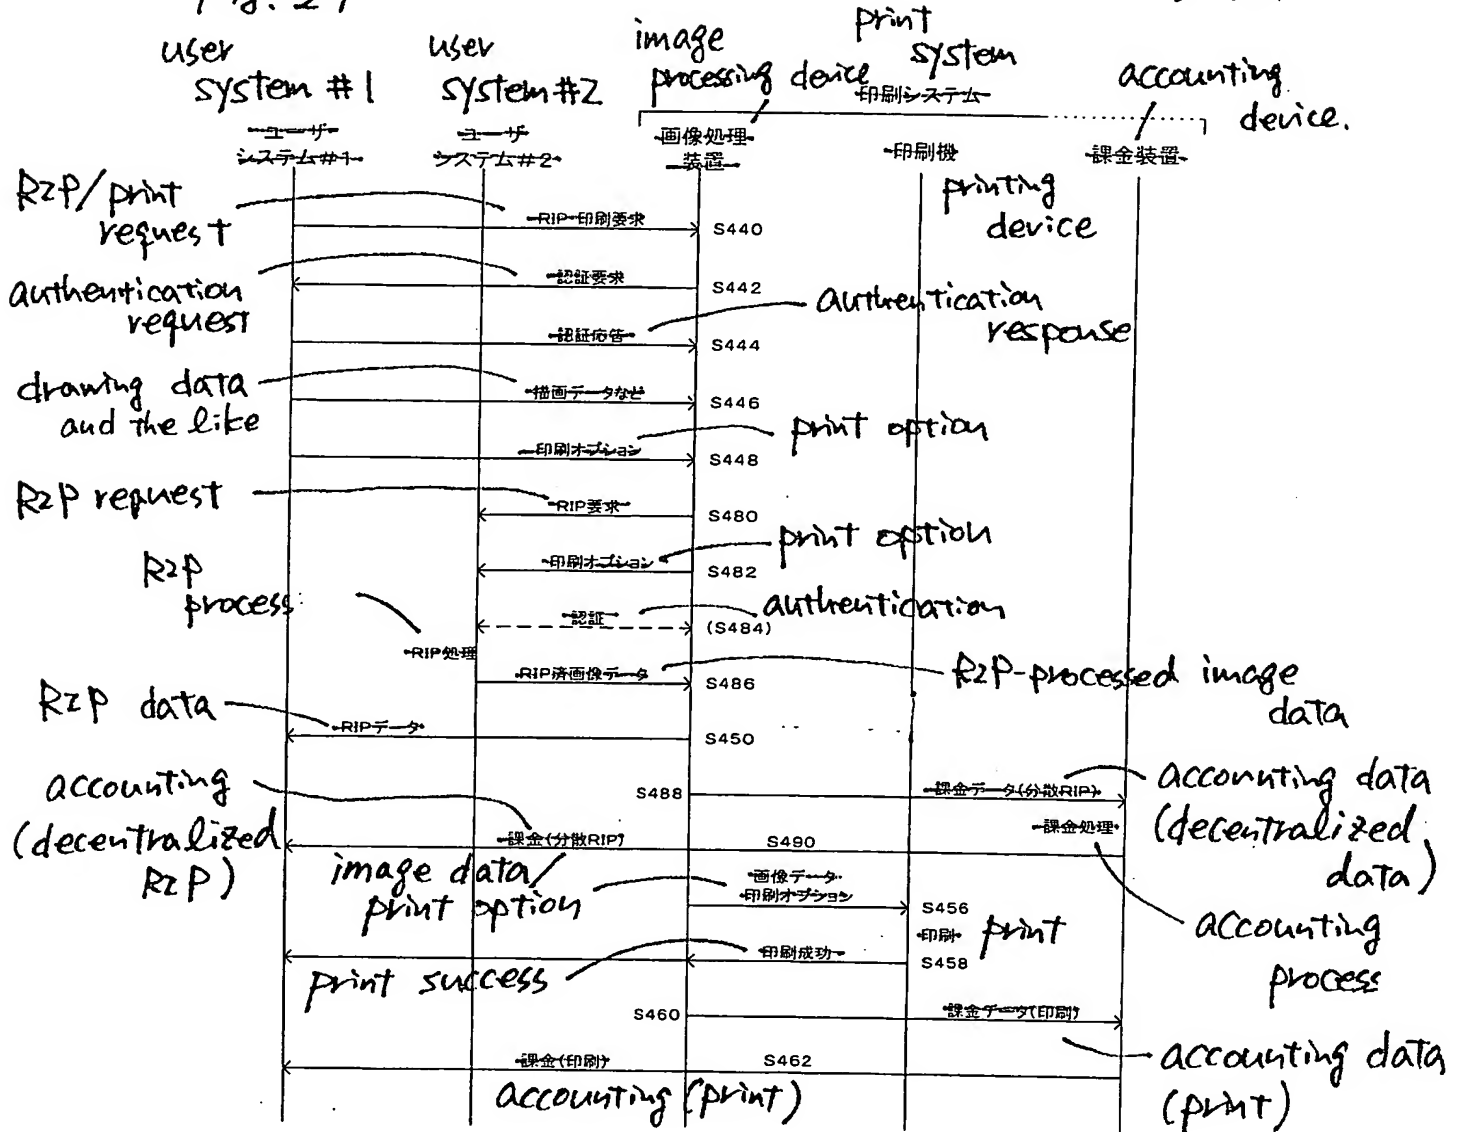 Fig. 29
user
system #1
user
system #2
image
processing device
print
system
accounting
device.
印刷システム
ユーザ
システム#1
ユーザ
システム#2
画像処理
装置
印刷機
課金装置
printing
device
RIP/print
request
RIP・印刷要求
S440
authentication
request
認証要求
S442
authentication
response
認証応答
S444
drawing data
and the like
描画データなど
S446
print option
印刷オプション
S448
RIP request
RIP要求
S480
print option
印刷オプション
S482
RIP
process
authentication
認証
(S484)
RIP処理
RIP済画像データ
S486
RIP-processed image
data
RIP data
RIPデータ
S450
accounting
(decentralized
RIP)
S488
課金データ(分散RIP)
accounting data
(decentralized
data)
課金処理
課金(分散RIP)
S490
image data/
print option
画像データ
印刷オプション
S456
印刷
print
accounting
process
print success
印刷成功
S458
S460
課金データ(印刷)
accounting data
(print)
課金(印刷)
S462
accounting (print)